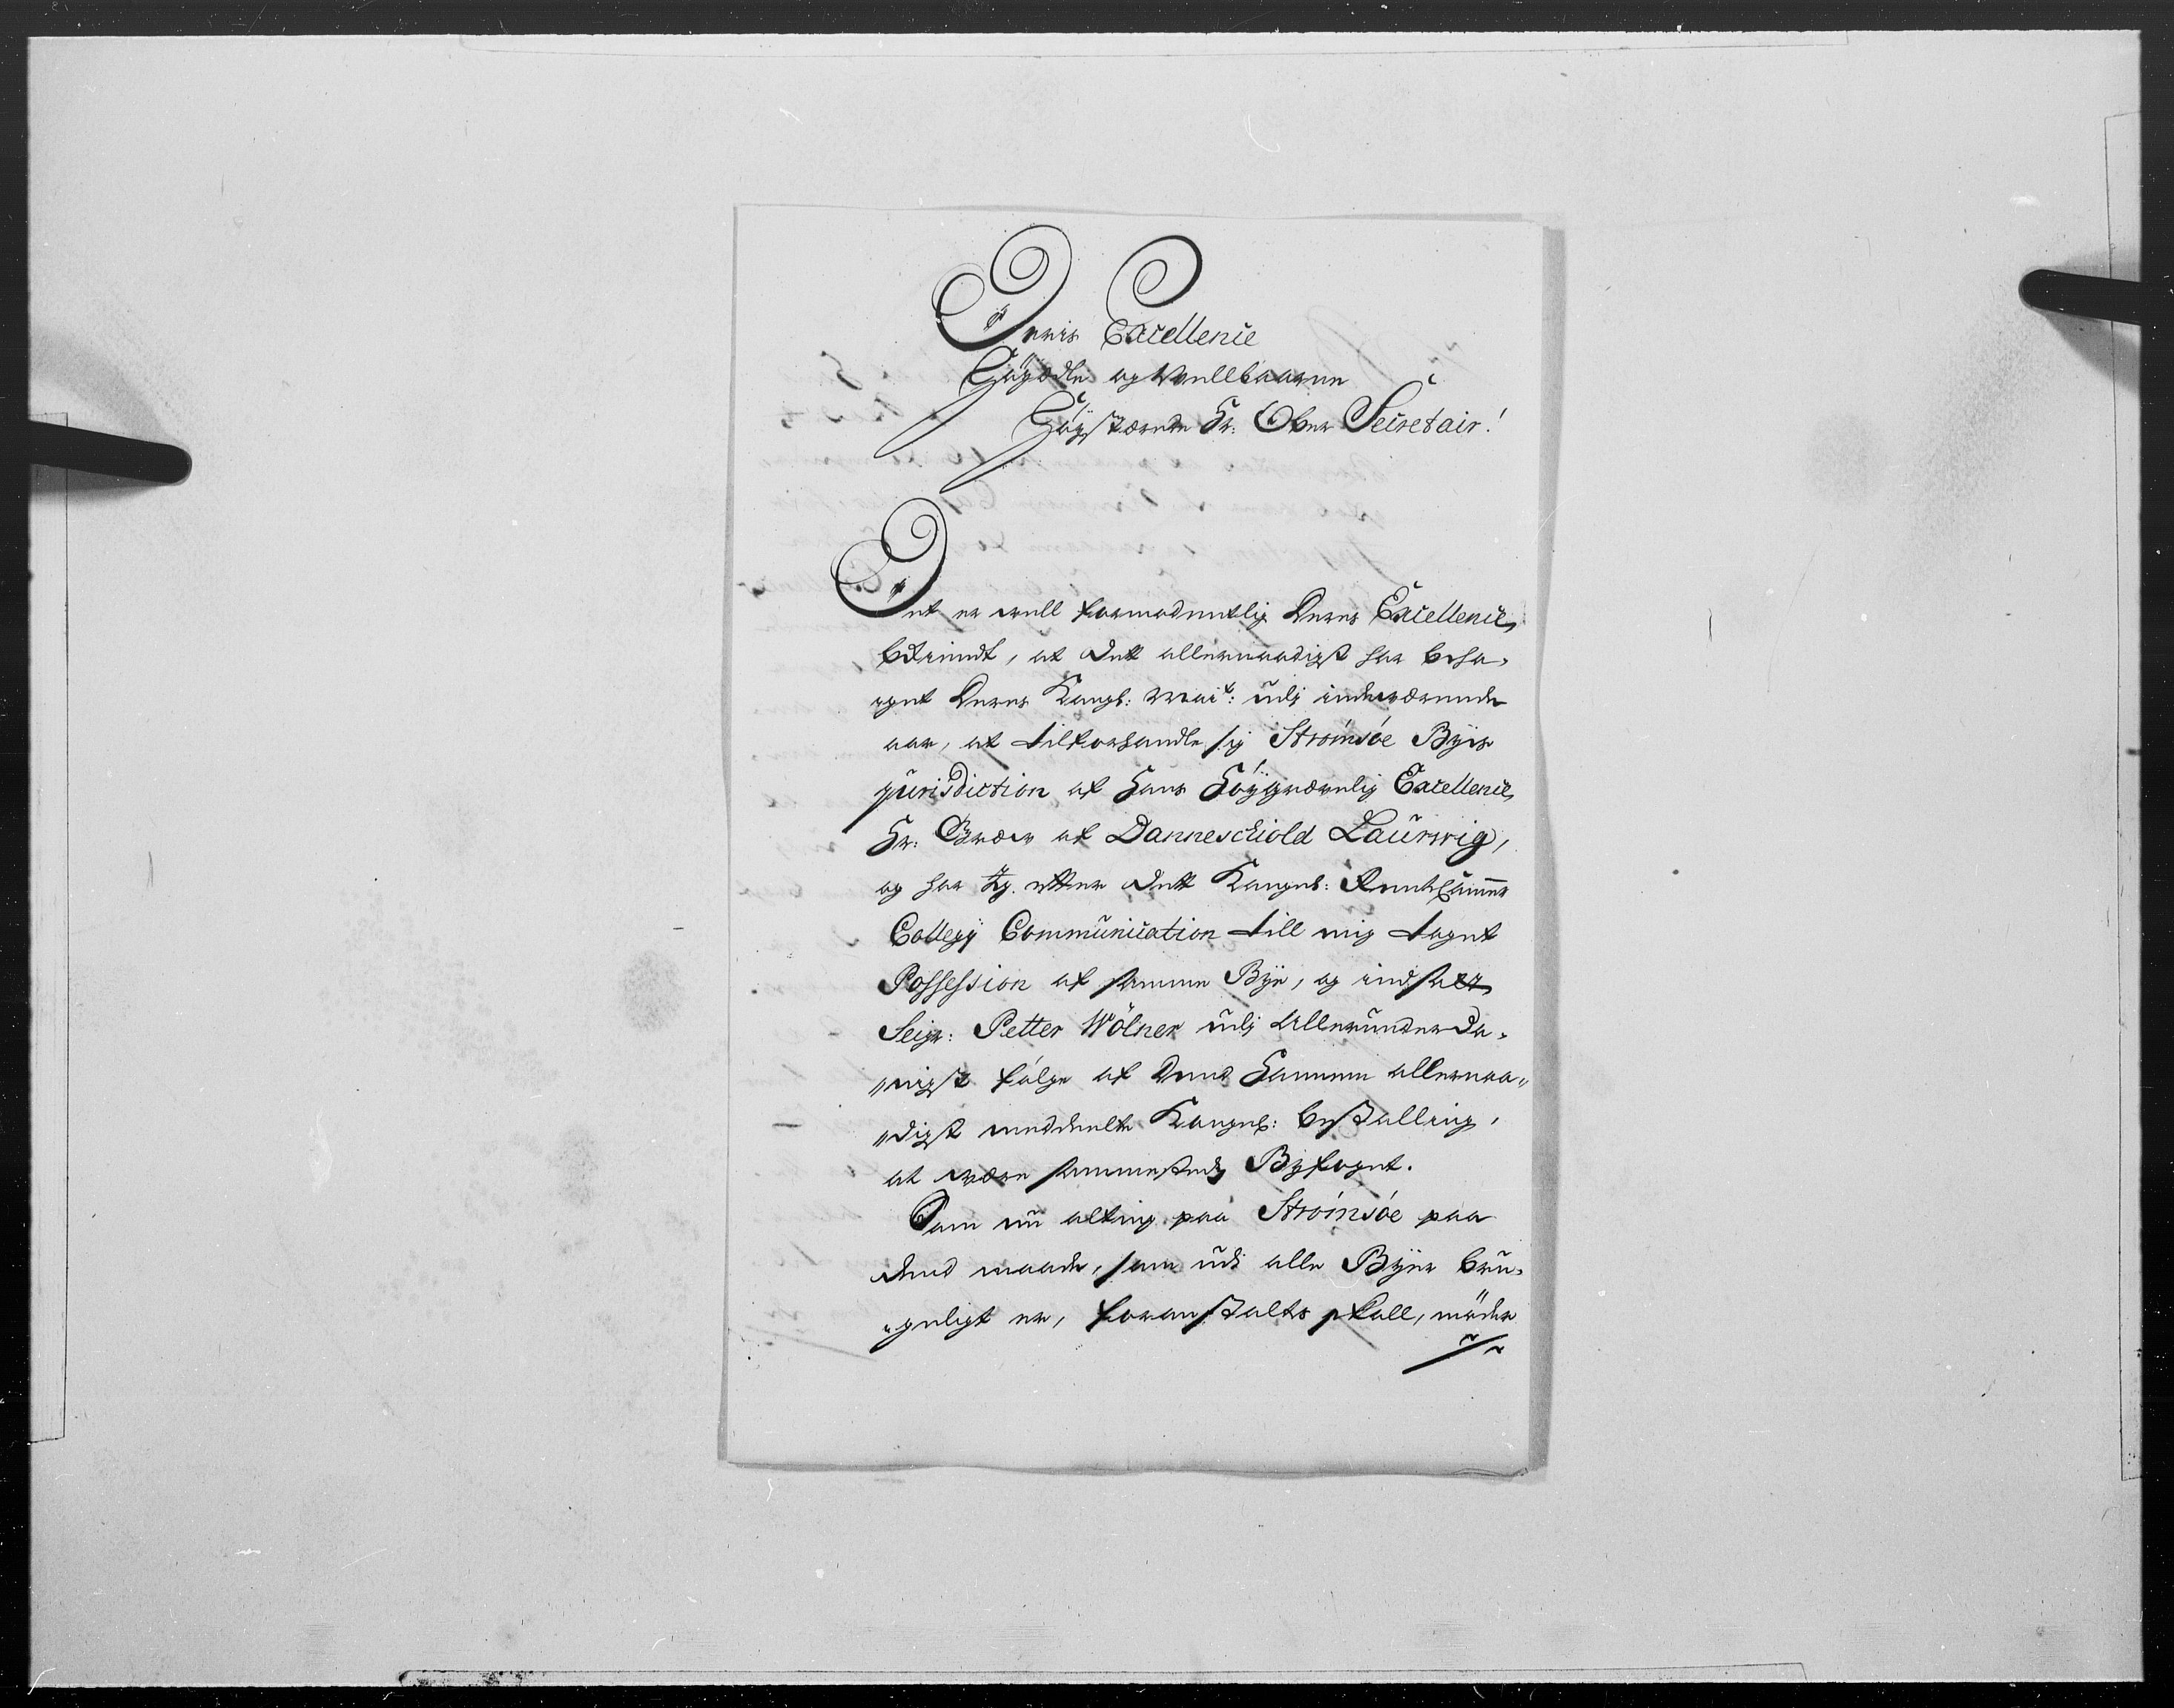 Deris Excellence
Høyædle og Welbaarne
Høystærede Hr: Ober Secretair!
Det er vell formodentlig Deres Excellence,
bekiendt, at dett allernaadigst har beha-
get Deres Kongl: Mait: udj indeværende
aar, at tilforhandle sig Strömsöe Byis
jurisdiction af Hans Höygrævelig Excellence,
Hr: Græv af Danneschiold Laurwig,
og har Jeg efter dett Kongel: RenteCammer
Collegij Communication till mig taget
Possession af samme Bye, og indsatt
Seigr: Petter Wölner udj Allerunderda-
nigst følge af dend Hannem allernaa-
digst meddeelte Kongel: bestalling,
at være sammestedz Byfoget.
Som nu alting paa Strömsöe paa
dend maade, som udi alle Byer bru-
geligt er, foranstaltes skall, nøder